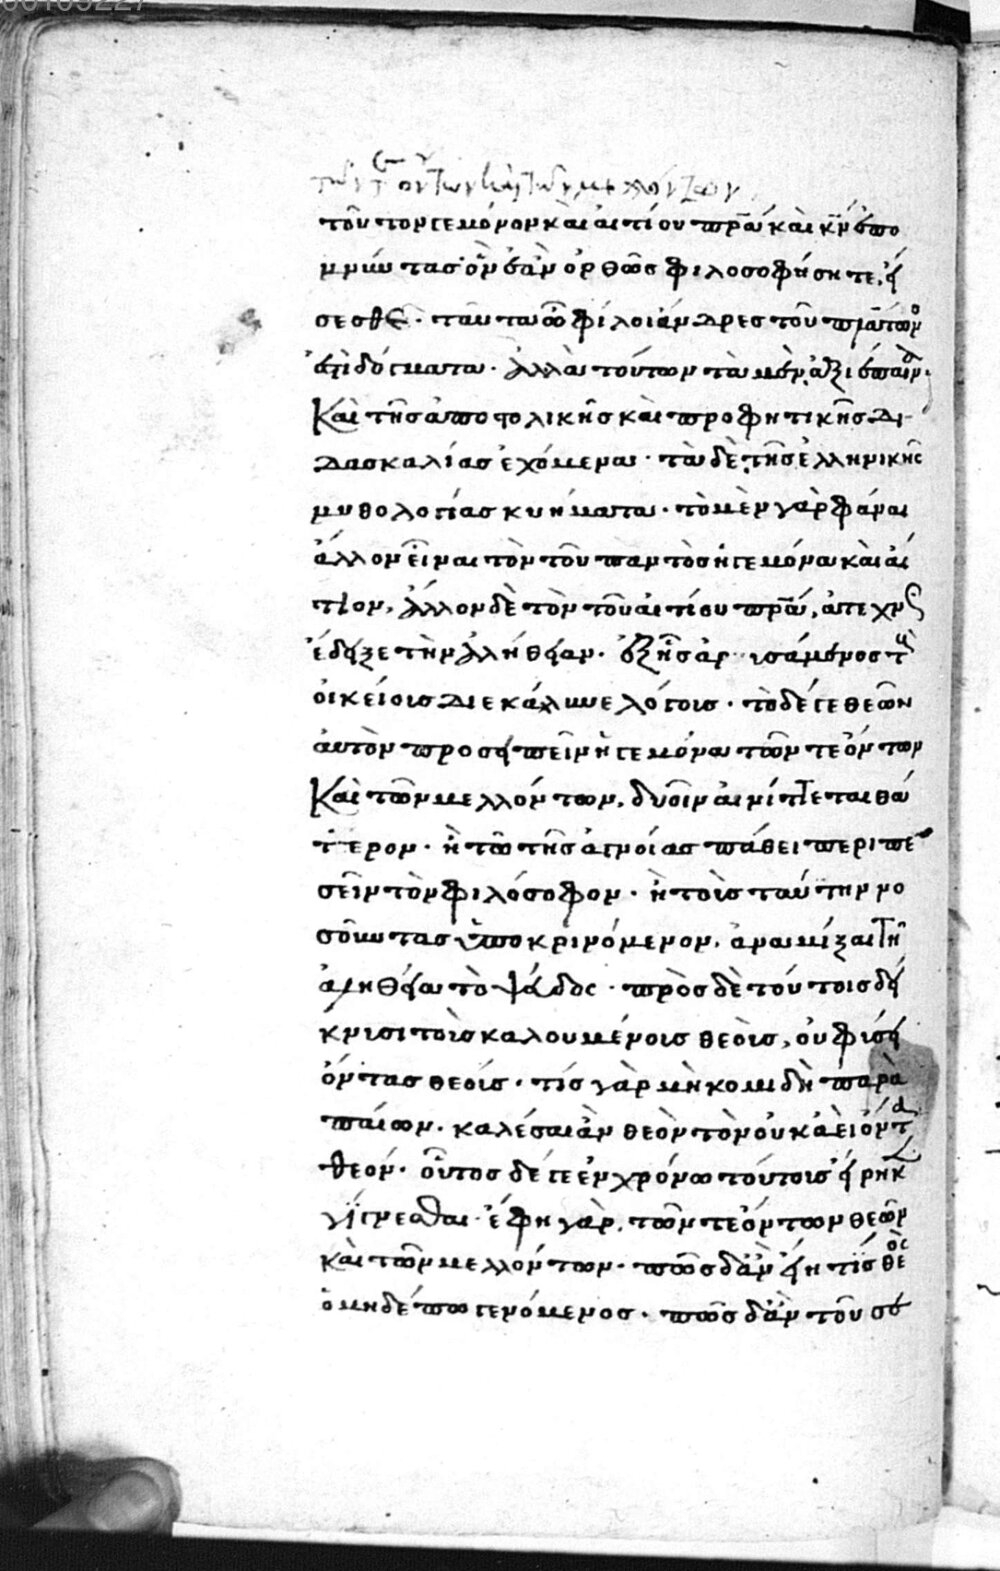 τῶν τε ὄντων καὶ τῶν μελλόντων
τοῦ τὸν γεμόνον καὶ αἰτίου πρα καὶ κν ἐπο
μνύντας ὃν ἐὰν ὀρθῶς φιλοσοφήσητε, εἴ
σεσθε. ταῦτα ὦ φίλοι ἄνδρες τοῦ πλάτωνο
ἐπὶ δόγματα. ἀλλὰ τούτων τὰ μὲν ἀξιέπαινα.
Καὶ τῆς ἀποστολικῆς καὶ προφητικῆς δι
δασκαλίας ἐχόμενα. τὰ δὲ τῆς ἑλληνικῆς
μυθολογίας κυήματα. τὸ μὲν γὰρ φάναι
ἄλλον εἶναι τὸν τοῦ παντὸς ἡγεμόνα καὶ αἴ
τιον, ἄλλον δὲ τὸν τοῦ αἰτίου πρα, ἀτεχνς
ἔδειξε τὴν ἀλήθειαν.
οἰκείοις διεκάλυψε λόγοις. τὸ δέ γε θεῶν
αὐτὸν προσειπεῖν ἡγεμόνα τῶν τε ὄντων
Καὶ τῶν μελλόντων, δυσὶν αἰνίττεται θά
τερον. ἢ τῶ τῆς ἀγνοίας πάθει περιπε
σεῖν τὸν φιλόσοφον. ἢ τοῖς ταύτην νο
σοῦντας ὑποκρινόμενον, ἀναμίξαι τῆ
ἀληθεία τὸ ψεῦδος. πρὸς δὲ τούτοις δεί
κνυσι τοῖς καλουμένοις θεοῖς, οὐ φύσει
ὄντας θεοίς. τίς γὰρ μὴ κομιδῆ παρὰ
παίων. καλέσαι ἂν θεὸν τὸν οὐκ ἀεὶ ὄντα
θεόν. οὗτος δέ γε ἐν χρόνω τούτοις εἴρηκε
γίγνεσθαι. ἔφη γὰρ, τῶν τε ὄντων θεῶν
καὶ τῶν μελλόντων. πῶς δἂν εἴη τίς θεὸς
ὁ μηδέπω γενόμενος. πῶς δἂν τοῦ σε